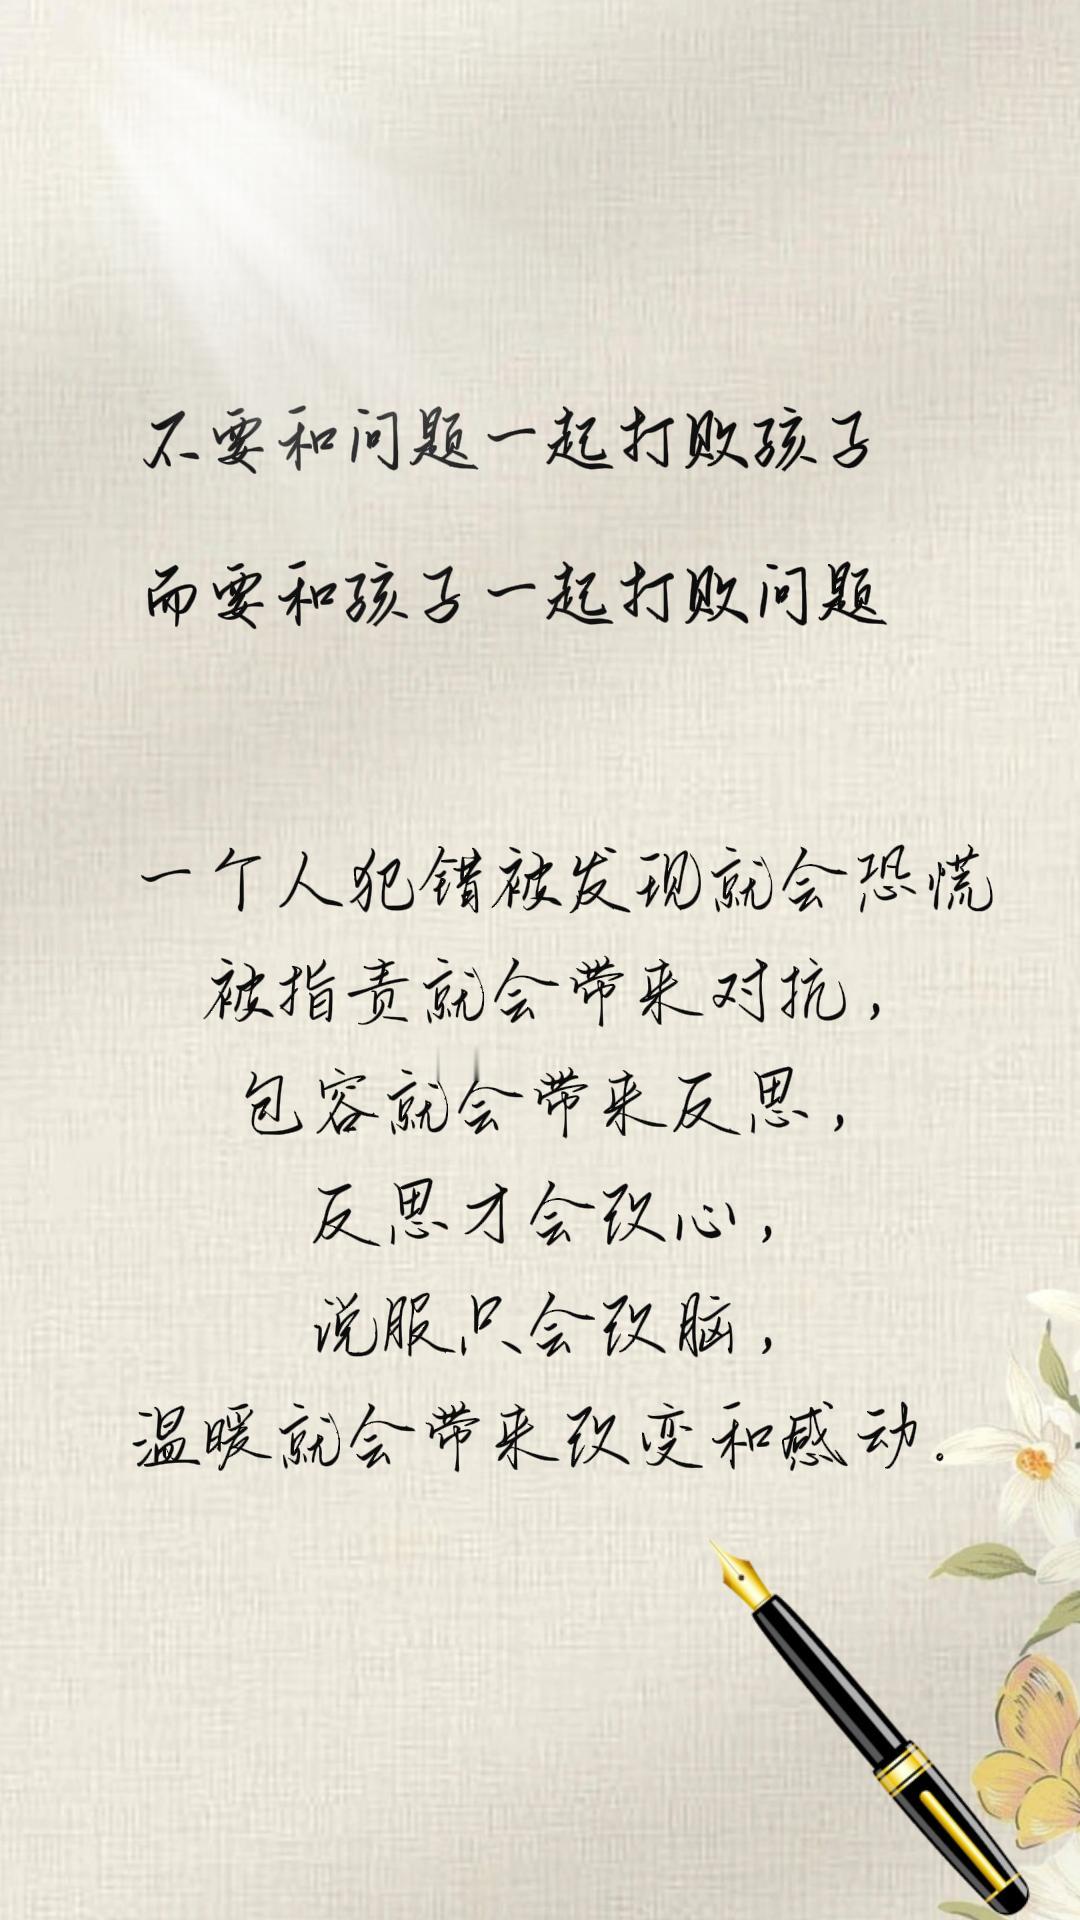 不要和问题一起打败孩子
而要和孩子一起打败问题
一个人犯错被发现就会恐慌
被指责就会带来对抗，
包容就会带来反思，
反思才会改心，
说服只会改脑，
温暖就会带来改变和感动。